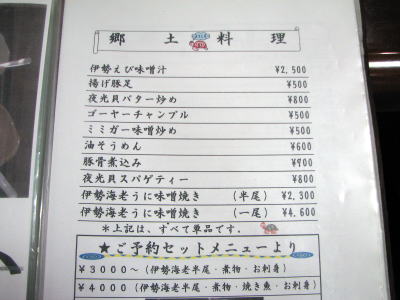 郷土料理
伊勢えび味噌汁 ¥2,500
揚げ豚足 ¥500
夜光貝バター炒め ¥800
ゴーヤーチャンプル ¥500
ミミガー味噌炒め ¥500
油そうめん ¥600
豚骨煮込み ¥900
夜光貝スパゲティー ¥800
伊勢海老うに味噌焼き （半尾） ¥2,300
伊勢海老うに味噌焼き （一尾） ¥4,600
＊上記は、すべて単品です。
★ご予約セットメニューより
¥3000～（伊勢海老半尾・煮物・お刺身）
¥4000（伊勢海老半尾・煮物・焼き魚・お刺身）